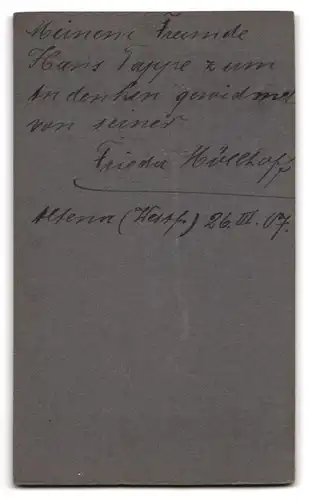 Meinem Freunde
Hans Tappe zum
Andenken gewidmet
von seiner
Frieda Höllhoff
Altena (Westf.) 26.III.07.